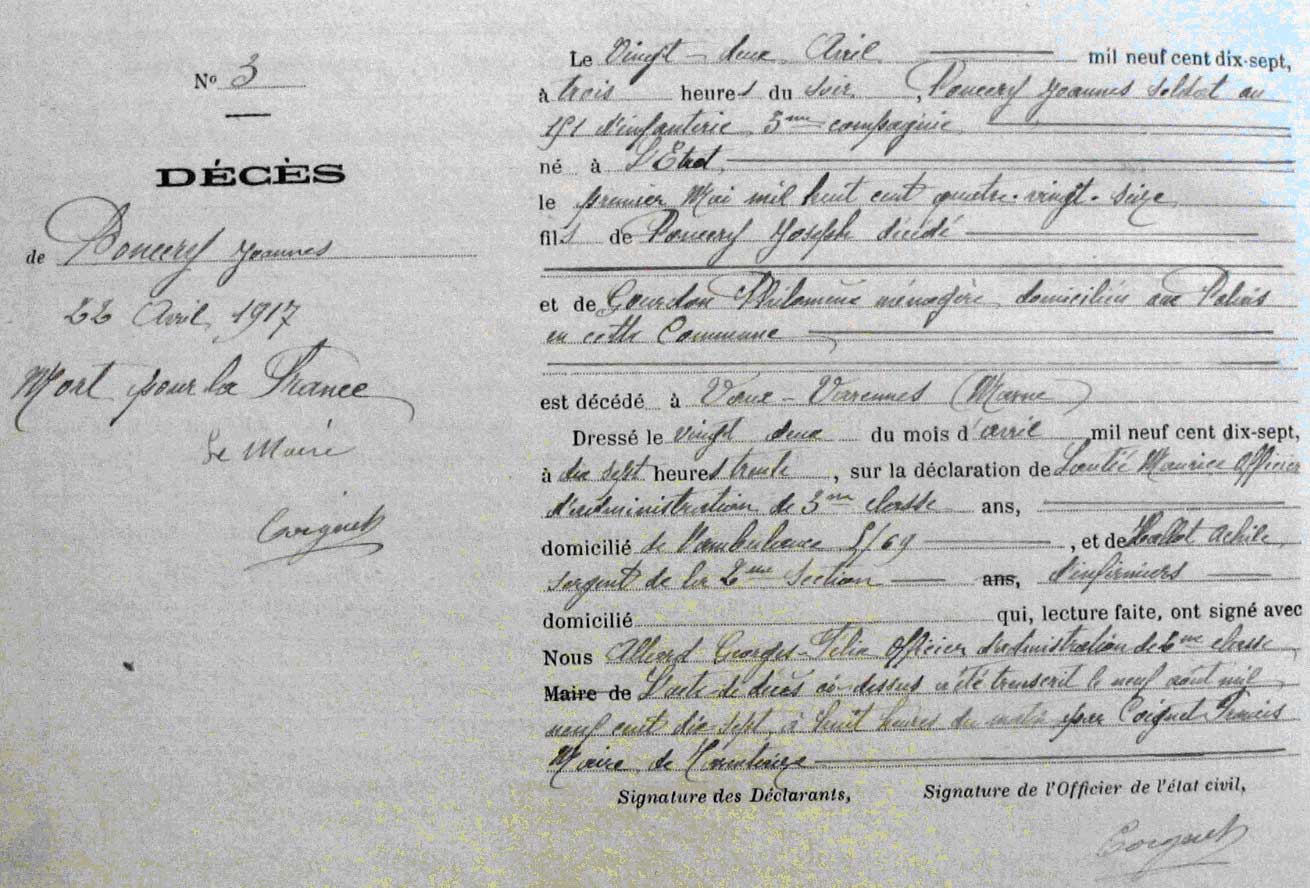 N° 3
DÉCÈS
de Poncery Joannes
22 Avril 1917
Mort pour la France
Le Maire
Coignet
Le Vingt-deux Avril mil neuf cent dix-sept,
à trois heures du soir, Poncery Joannes soldat au
151 d'infanterie 3me compagnie
né à L'Etrat
le premier Mai mil huit cent quatre-vingt-seize
fils de Poncery Joseph décédé
et de Gourdon Philomène ménagère domiciliée aux
en cette Commune
est décédé à Vaux-Varennes (Marne)
Dressé le vingt deux du mois d'avril mil neuf cent dix-sept,
à dix sept heures trente, sur la déclaration de Maurice Officier
d'administration de 3me classe ans,
domicilié de l'ambulance 5/69, et de Hallot Achile,
sergent de la 2eme Section ans, d'infirmiers
domicilié qui, lecture faite, ont signé avec
Nous Allard Georges-Félix Officier d'administration de 2me classe
Maire de L'acte de décès ci-dessus a été transcrit le neuf août mil
neuf cent dix sept, à huit heures du matin par Coignet Francis
Maire de
Signature des Déclarants, Signature de l'Officier de l'état civil,
Coignet